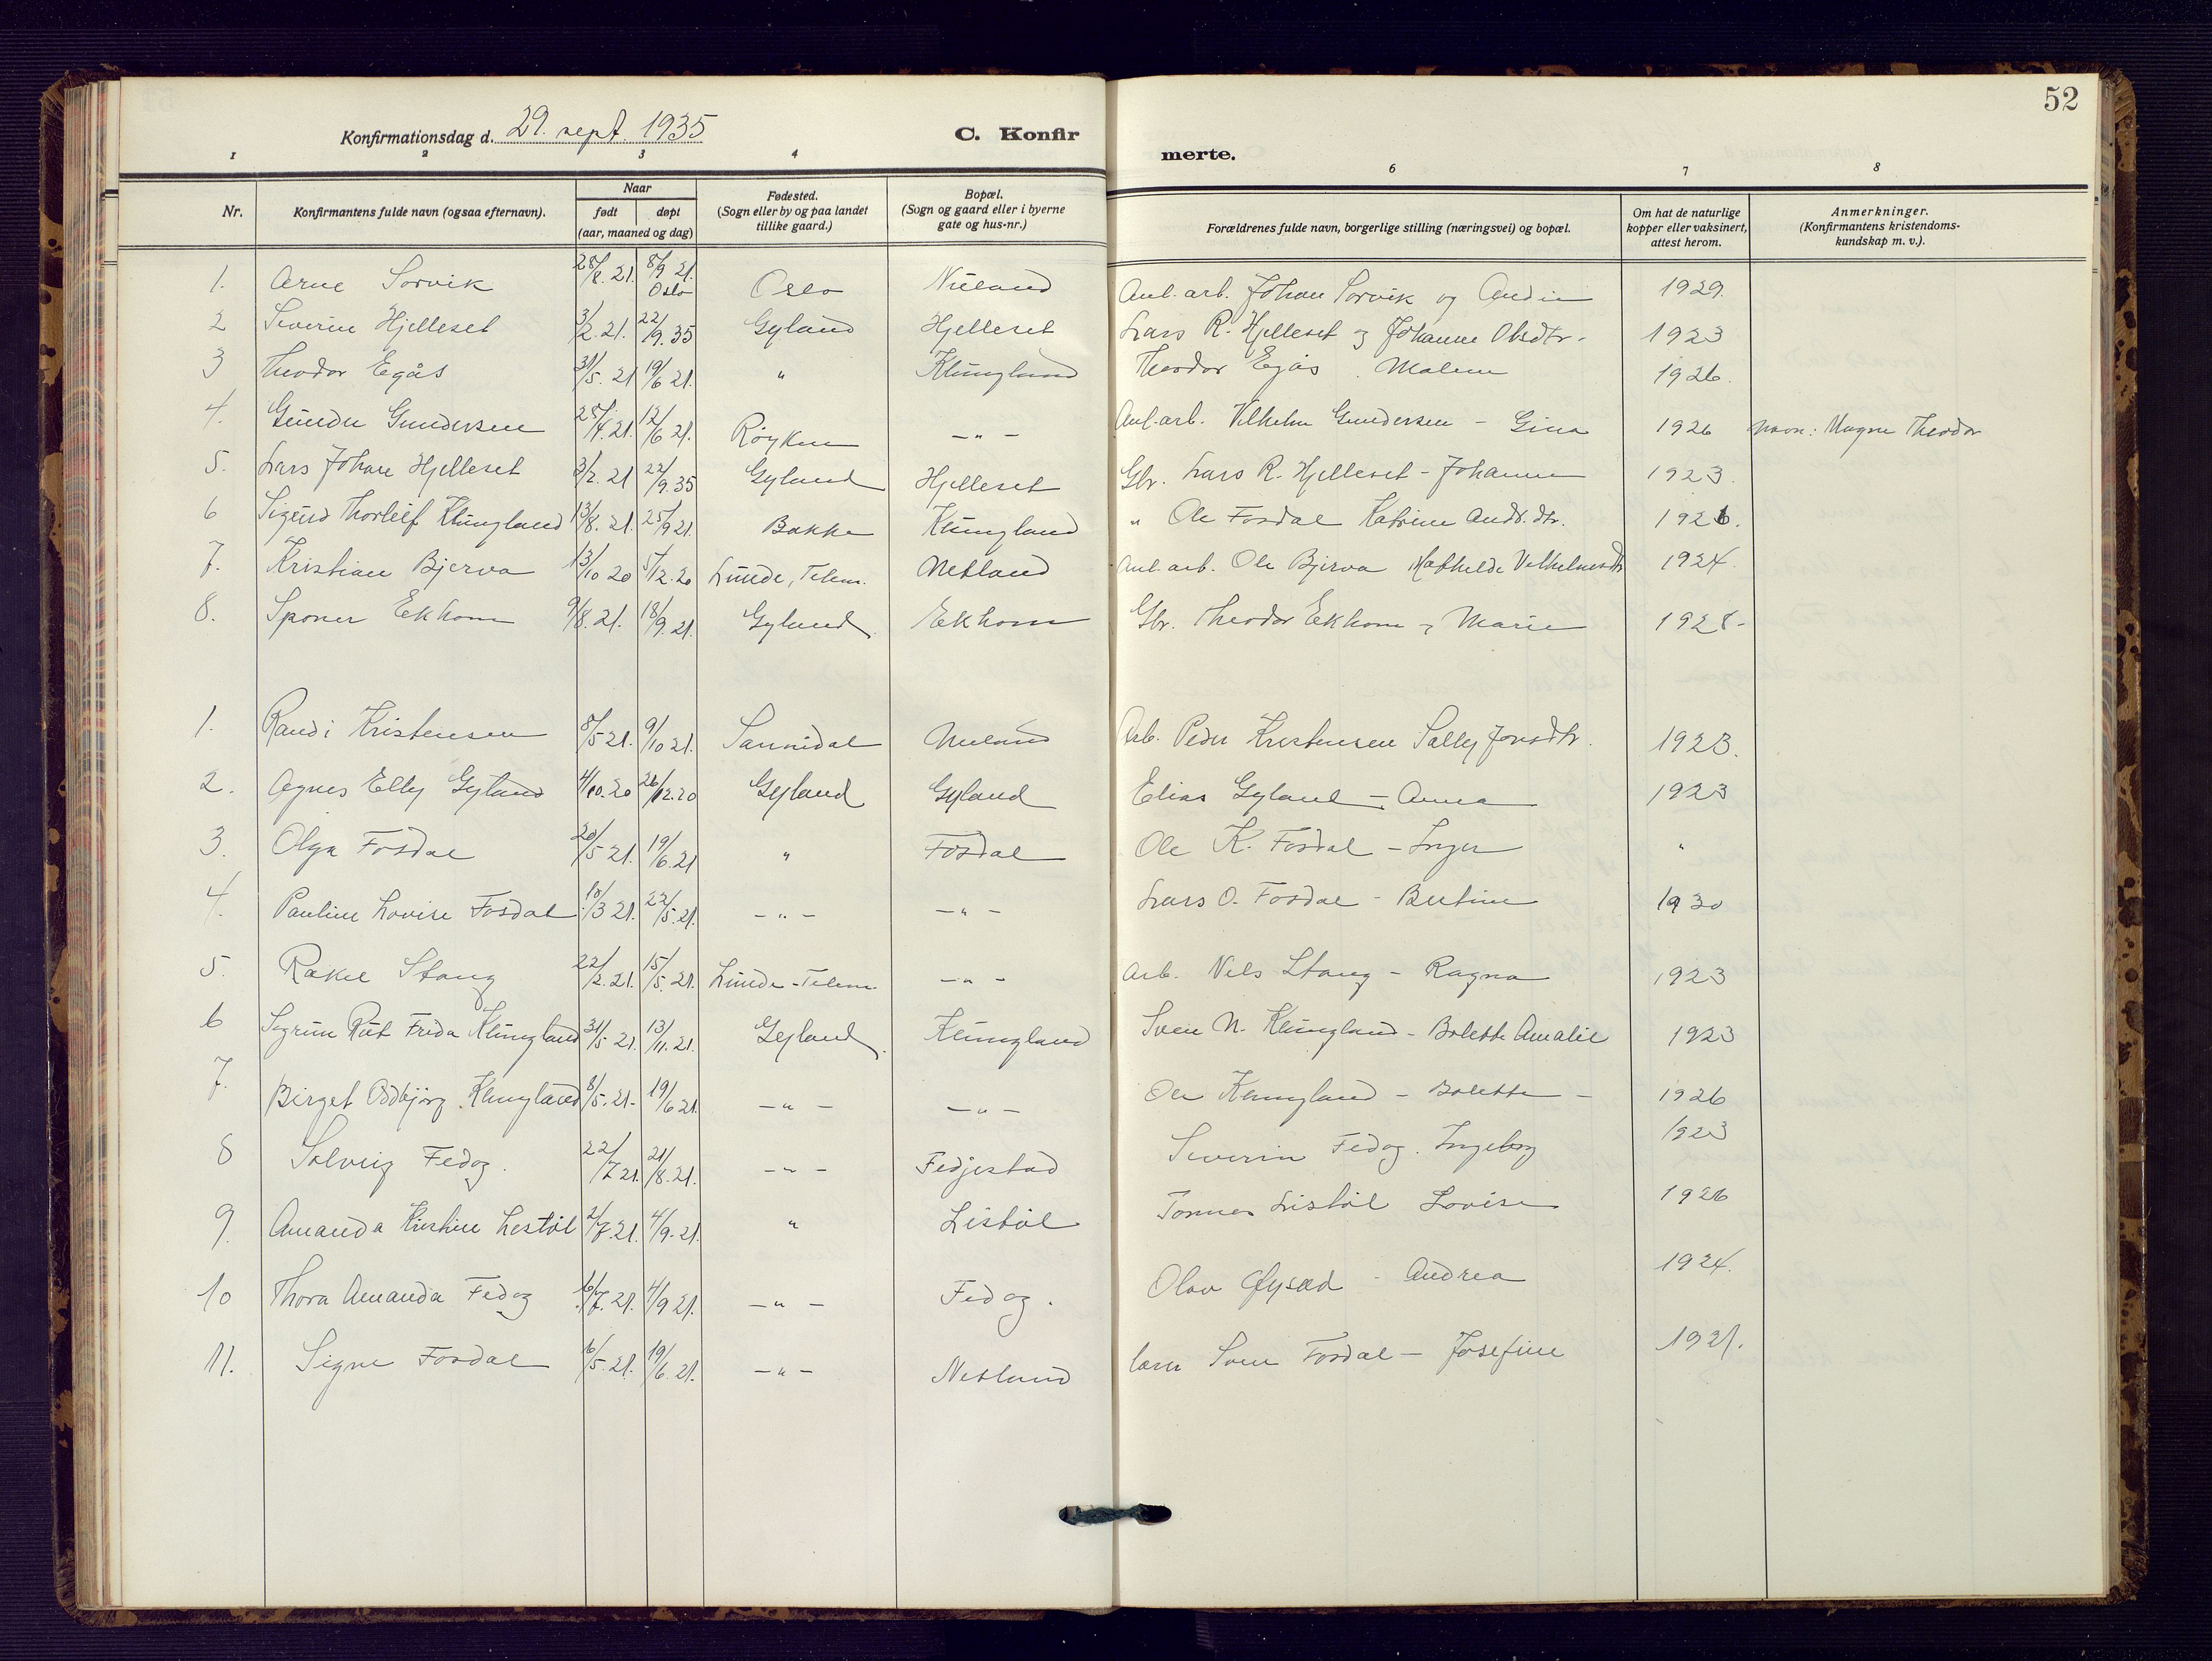 52
Konfirmationsdag d. 29. sept. 1935 C. Konfirmerte.
1 2 3 4 6 7 8
Nr. Konfirmantens fulde navn (ogsaa efternavn). Naar født døpt (aar, maaned og dag) Fødested. (Sogn eller by og paa landet tillike gaard.) Bopæl. (Sogn og gaard eller i byerne gate og hus-nr.) Forældrenes fulde navn, borgerlige stilling (næringsvei) og bopæl. Om hat de naturlige kopper eller vaksinert, attest herom. Anmerkninger. (Konfirmantens kristendomskundskap m. v.).
1. Arne Sorvik 28/8. 21. 8/9 21. Oslo Oslo Nuland Anl. arb. Johan Sorvik og 1929.
2 Severin Hjelleset 3/2. 21. 22/9. 35 Gyland Hjelleset Lars R. Hjelleset og Johanne Olsdtr. 1923
3 Theodor Egås 31/5. 21 19/6 21. " Klungland Theodor Egås. Malene 1926.
4. Gunder Gundersen 28/4. 21. 12/6 21. Røyken - " - Anl. arb. Vilhelm Gundersen - Gina 1926 navn: Magne Theodor
5. Lars Johan Hjelleset 3/2. 21 22/9. 35 Gyland Hjelleset Gbr. Lars R. Hjelleset - Johanne 1923.
6 Sigurd Thorleif Klungland 13/8. 21. 25/9 21. Bakke Klungland " Ole Fosdal Katrine Andr. dtr. 1921.
7. Kristian Bjerva 13/10 20 5/12. 20 Lunde, Telem. Netland Anl. arb. Ole Bjerva Mathelde Velhelmsdtr 1924.
8. Sponer Ekhom 9/8. 21. 18/9. 21. Gyland. Ekhom Gbr. Theodor Ekhom og Marie 1928-
1. Randi Kristensen 8/5 21. 9/10 21. Sannidal Nuland Arb. Peder Kristensen Sally Jonsdtr. 1923.
2. Agnes Elly Gyland 4/10. 20 26/12. 20 Gyland Gyland Elias Gyland - Anna 1923
3. Olga Fosdal 20/5 21. 19/6. 21 " Fosdal Ole K. Fosdal - Inger "
4. Pauline Lovise Fosdal 10/3 21. 22/5. 21. - " - - " - Lars O. Fosdal - Bertine 1930
5. Rakel Stang 22/2. 21. 15/5. 21. Lunde - Telem. - " - Arb. Nils Stang - Ragna 1923
6 Sigrun Rut Frida Klungland 31/5 21. 13/11. 21. Gyland. Klungland Sven N. Klungland - Bolette Amalie 1923
7. Birget Oddbjørg Klungland 8/5. 21- 19/6 21. - " - - " - Ole Klungland - Bolette - 1926
8 Solveig Fedog. 22/7 21. 21/8. 21. - " - Fedjestad Severin Fedog. Ingeborg 1923
9. Amanda Kristine Lestöl 2/7. 21. 4/9. 21. " Listöl Tønnes Listöl Lovise 1926
10 Thora Amanda Fedog 16/7. 21. 4/9 21. - " - Fedog. Olav - Andrea 1924.
11. Signe Fosdal 6/5. 21. 19/6. 21. - " - Netland Sven Fosdal - Josefine 1921.